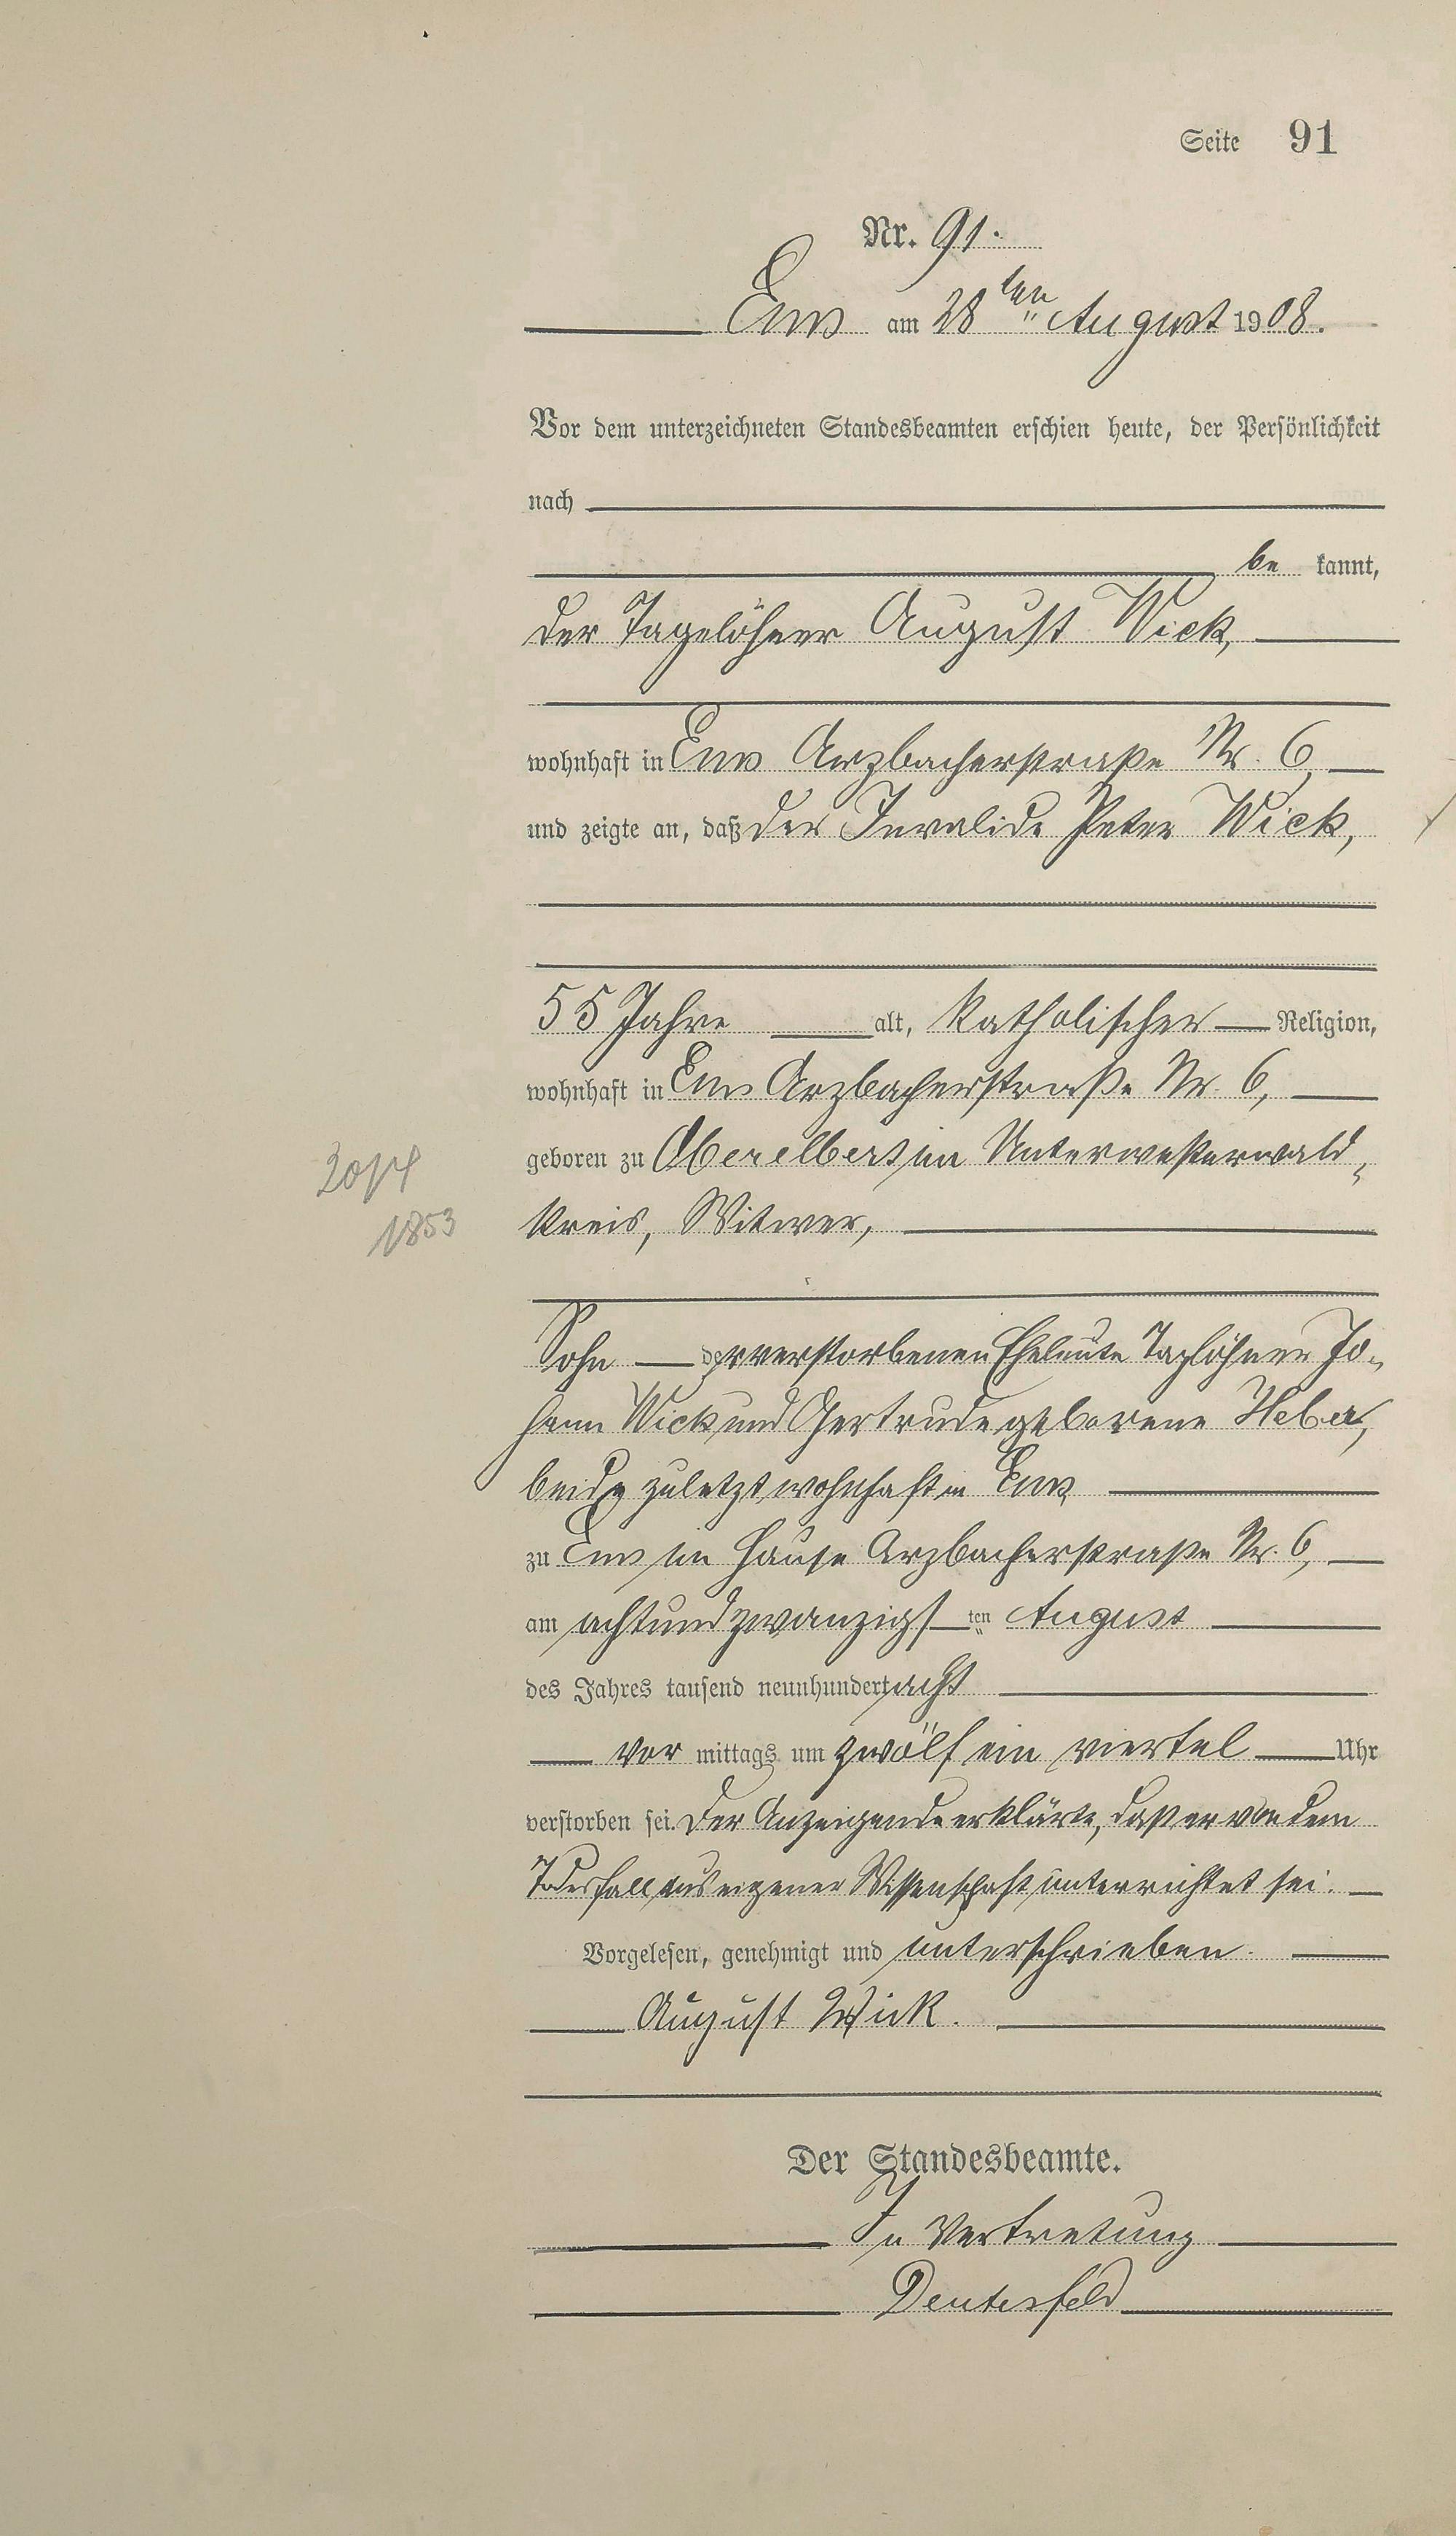 Seite 91
Nr. 91.
Ems am 28ten August 1908.
Vor dem unterzeichneten Standesbeamten erschien heute, der Persönlichkeit
nach
be kannt,
der Tagelöhner August Wick,
wohnhaft in Ems Arzbacherstraße Nr. 6,
und zeigte an, daß der Invalide Peter Wick,
55 Jahre alt, katholischer Religion,
wohnhaft in Ems Arzbacherstraße Nr. 6,
geboren zu Oberelbert im Unterwesterwald-
1853
kreis, Witwer,
Sohn der verstorbenen Eheleute Taglöhner Jo-
hann Wick und Gertrude geborene
beide zuletzt wohnhaft in Ems
zu Ems im Hause Arzbacherstraße Nr. 6,
am achtundzwanzigsten August
des Jahres tausend neunhundert acht
vor mittags um zwölf ein viertel Uhr
verstorben sei. Der Anzeigende erklärte, daß er von dem
Todesfall aus eigener Wissenschaft unterrichtet sei.
Vorgelesen, genehmigt und unterschrieben.
August Wick.
Der Standesbeamte.
In Vertretung